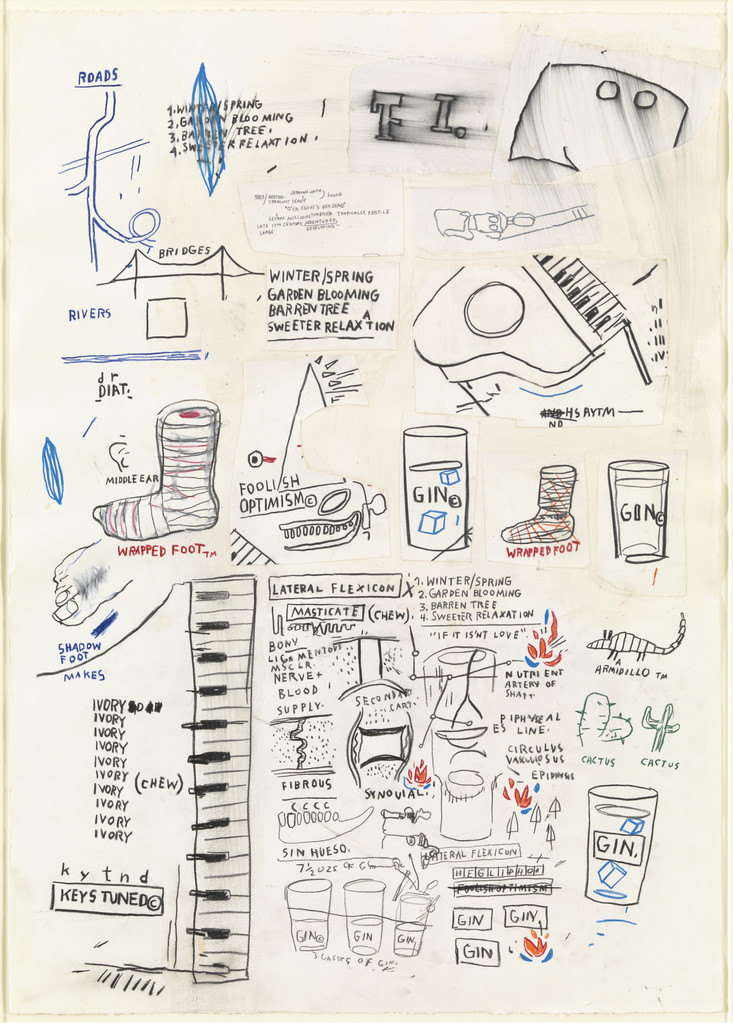 ROADS
1. WINTER/SPRING
2. GARDEN BLOOMING
3. BARREN TREE.
4. SWEETER RELAXTION.
I
TF I.
LATE 19TH CENTURY
LARGE
BRIDGES
RIVERS
WINTER/SPRING
GARDEN BLOOMING
BARREN TREE
SWEETER RELAXATION
dr
DIRT.
HSRYTM
ND
MIDDLE EAR
WRAPPED FOOT TM
FOOLISH
OPTIMISM©
GIN©
WRAPPED FOOT
GIN©
SHADOW
FOOT
MAKES
LATERAL FLEXICON X
MASTICATE (CHEW).
1. WINTER/SPRING
2. GARDEN BLOOMING
3. BARREN TREE
4. SWEETER RELAXATION
"IF IT ISNT LOVE"
BONY
LIGAMENTOUS
MSCLR.
NERVE+
BLOOD
SUPPLY.
SECONDARY
CART.
NUTRIENT
ARTERY OF
SHAFT.
ARMIDILLO TM
A
IVORY
IVORY
IVORY
IVORY
IVORY
IVORY
IVORY (CHEW)
IVORY
IVORY
IVORY
FIBROUS
SYNOVIAL.
EPIPHYSEAL
LINE.
CIRCULUS
EPIPHISIS
CACTUS
CACTUS
CCCC
SIN HUESO.
7½ OZE OF G
LATERAL FLEXICON
FOOLISH OPTIMISM
GIN.
kytnd
KEYS TUNED©
GIN©
GIN
GIN.
GIN
GIN.
GIN
3 GASSES OF GIN.